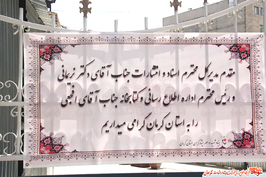 مقدم مدیرکل محترم اسناد و انتشارات جناب آقای دکتر نریمانی
و رییس محترم اداره اطلاع رسانی و کتابخانه جناب آقای رفیعی
را به استان کرمان گرامی میداریم